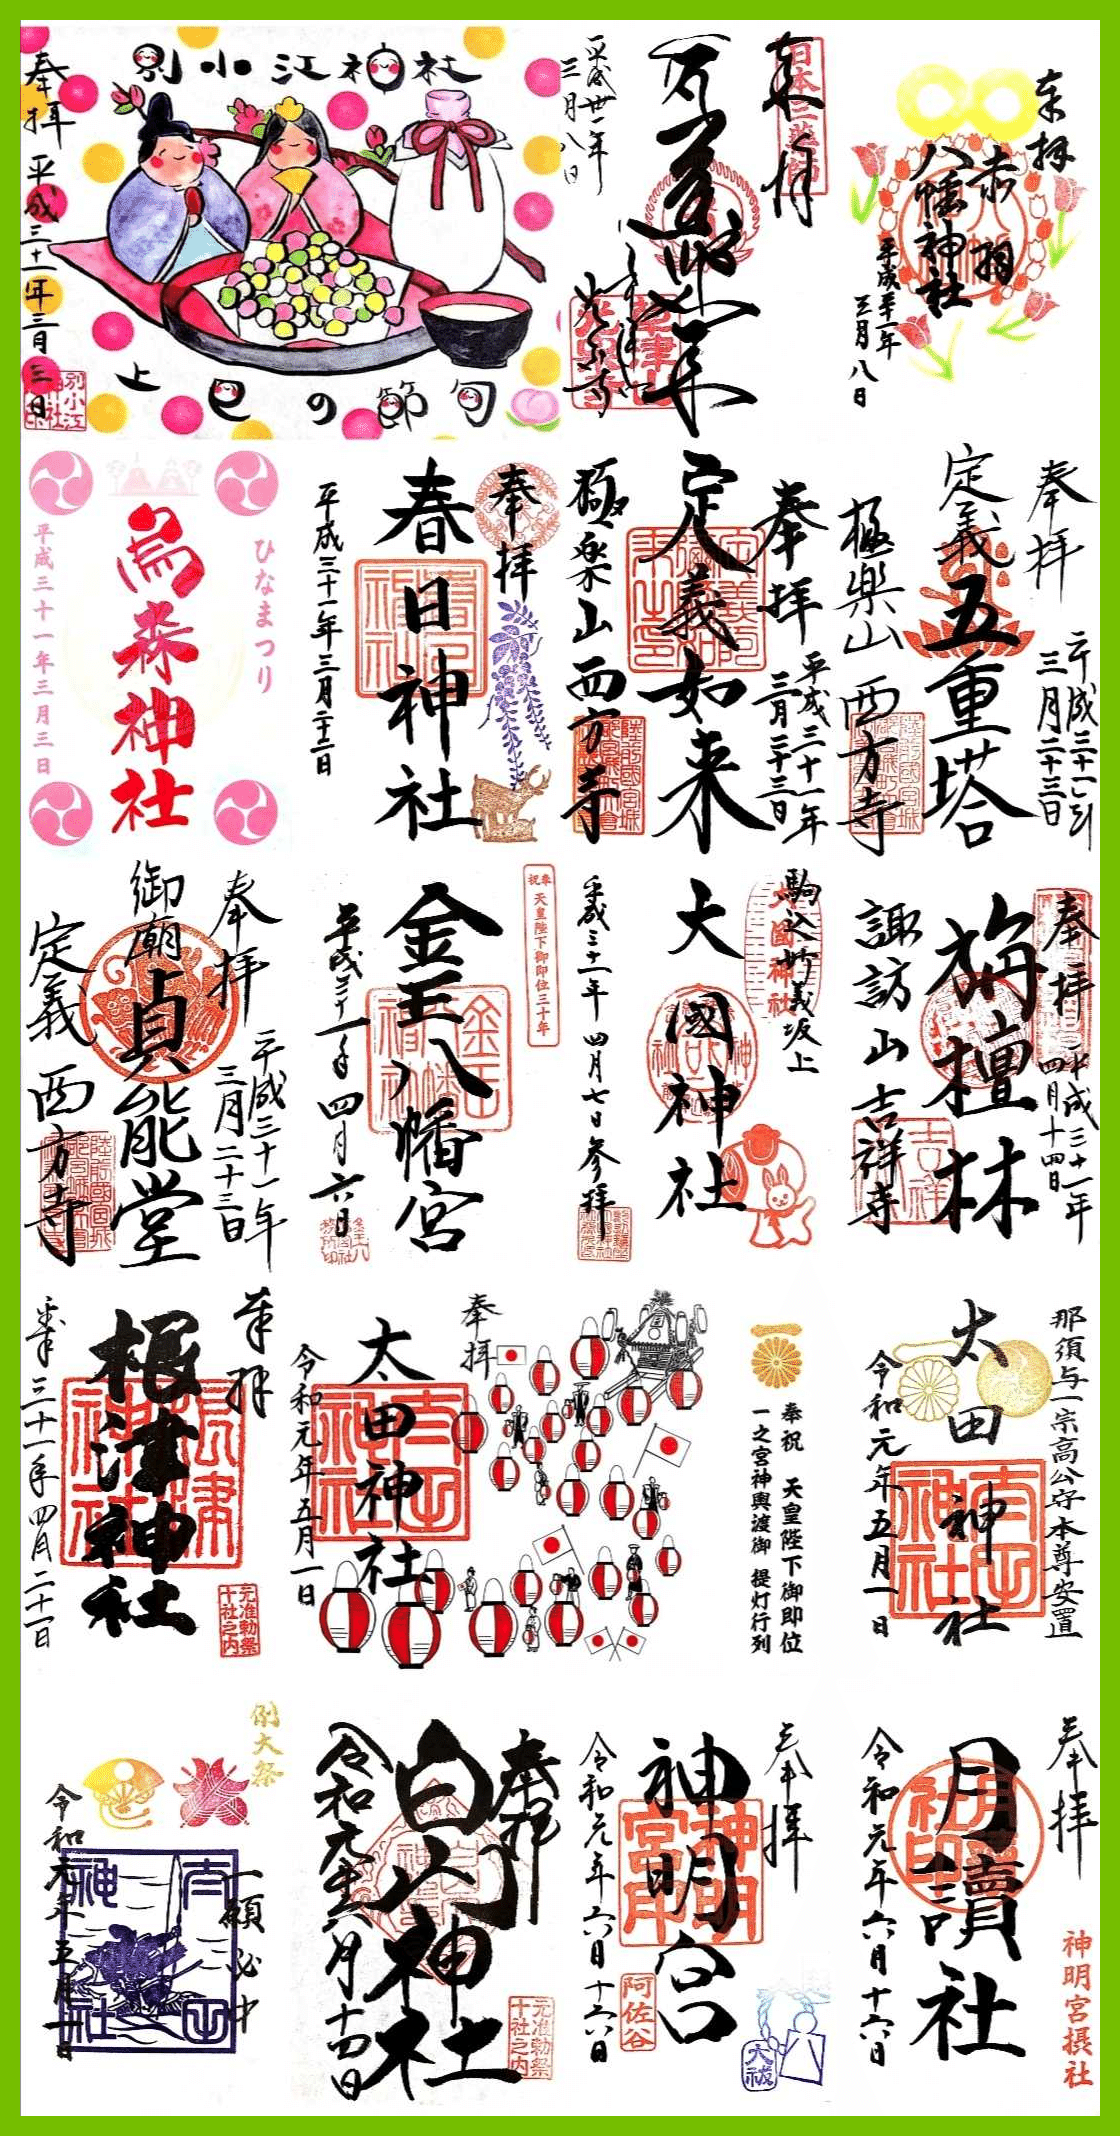 別小江神社
奉拝
平成三十一年三月三日
上巳の節句
別小江
日本三薬師
平成丗一年
三月八日
奉拝
赤羽
八幡神社
平成卅一年
三月八日
ひなまつり
烏森神社
平成三十一年三月三日
奉拝
春日神社
平成三十一年三月二十二日
奉拝
平成三十一年
三月二十三日
定義如来
極楽山西方寺
奉拝
平成三十一年
三月二十三日
定義
五重塔
極楽山
西方寺
奉拝
平成三十一年
三月二十三日
御廟
貞能堂
定義
西方寺
奉祝 天皇陛下御即位三十年
金王八幡宮
平成三十一年四月六日
駒込
義坂上
大國神社
平成三十一年四月七日参拝
奉拝
平成三十一年
四月十四日
栴檀林
諏訪山吉祥寺
奉拝
根津神社
三十一年四月二十一日
元准勅祭
十社之内
奉祝 天皇陛下御即位
一之宮神輿渡御 提灯行列
奉拝
太田神社
令和元年五月一日
那須与一宗高公守本尊安置
太田神社
令和元年五月一日
例大祭
一願必中
令和元年五月一日
奉拝
白山神社
令和元年六月十四日
元准勅祭
十社之内
奉拝
神明宮
阿佐谷
令和元年六月十六日
大祓
奉拝
月讀社
令和元年六月十六日
神明宮摂社